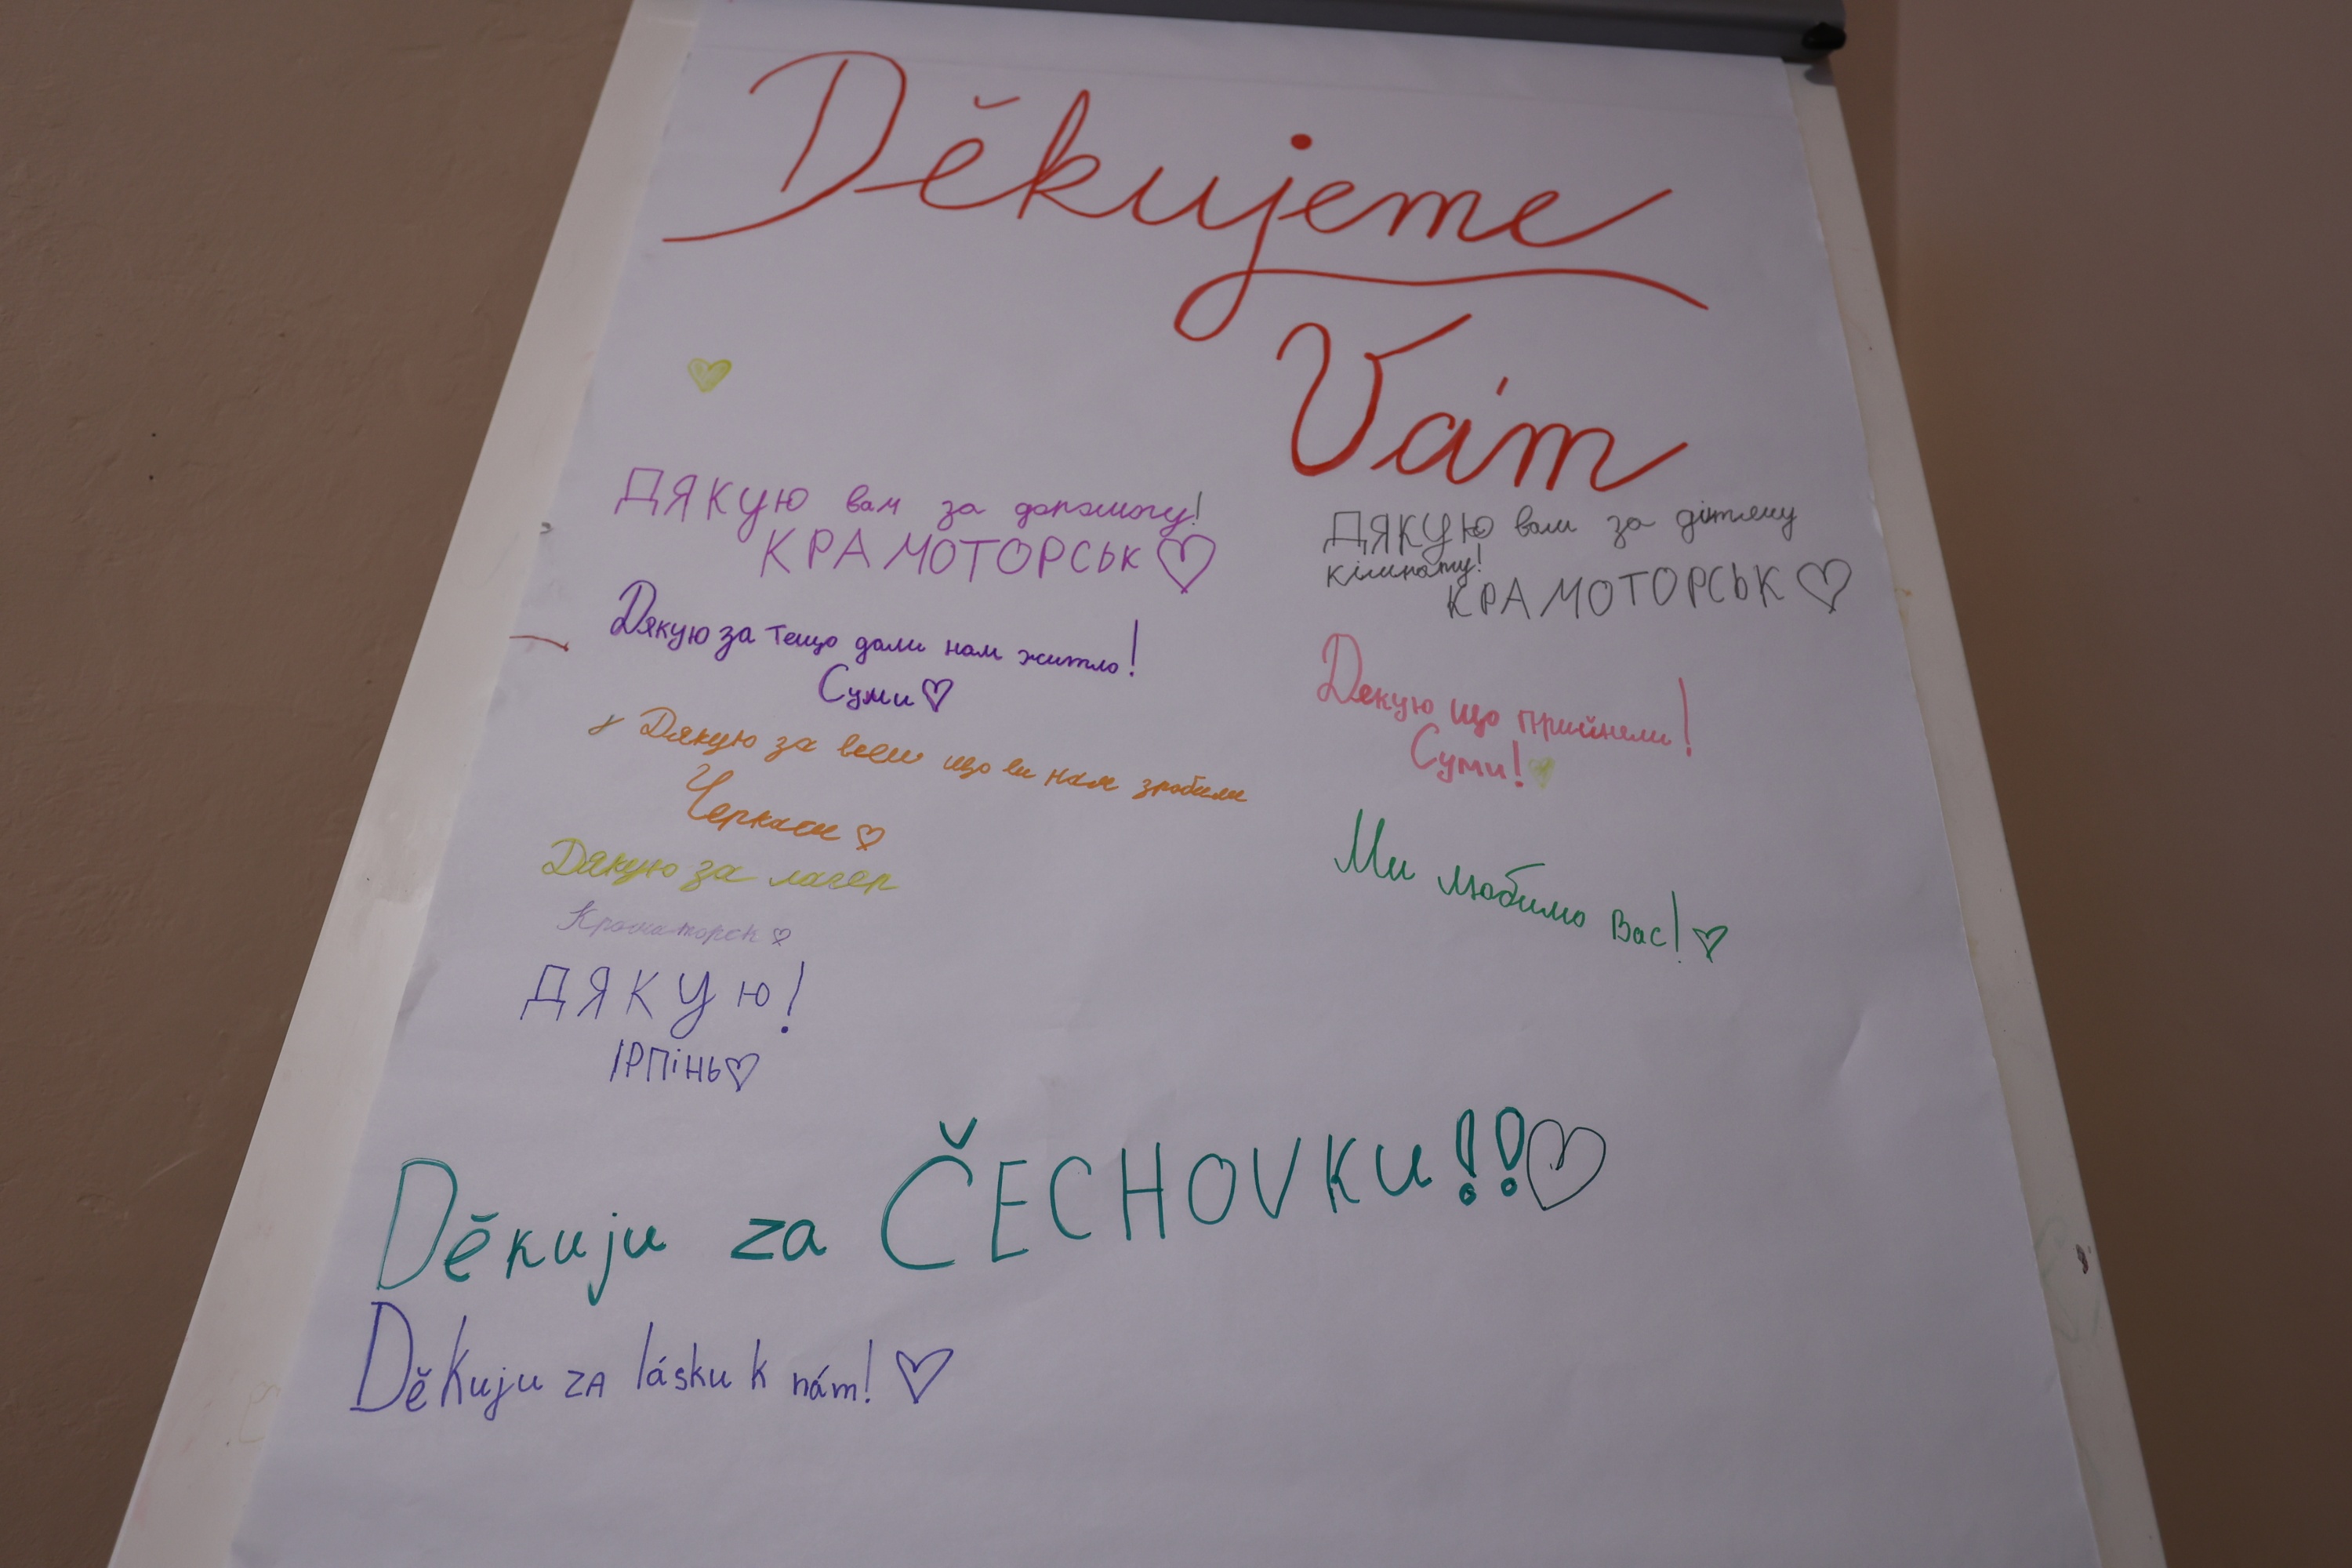 Děkujeme
Vám
ДЯКУЮ вам за допомогу!
КРАМОТОРСЬК
ДЯКУЮ вам за дітячу
кімнату!
КРАМОТОРСЬК
Дякую за тещо дали нам житло!
Суми
Дякую що прийнели!
Суми!
Дякую за всеи що ви нам зробили
Черкаси
Ми любимо Вас!
Дякую за лагер
Краматорск
ДЯКУЮ!
ІРПіНЬ
Děkuju za ČECHOVKU!!
Děkuju ZA lásku k nám!